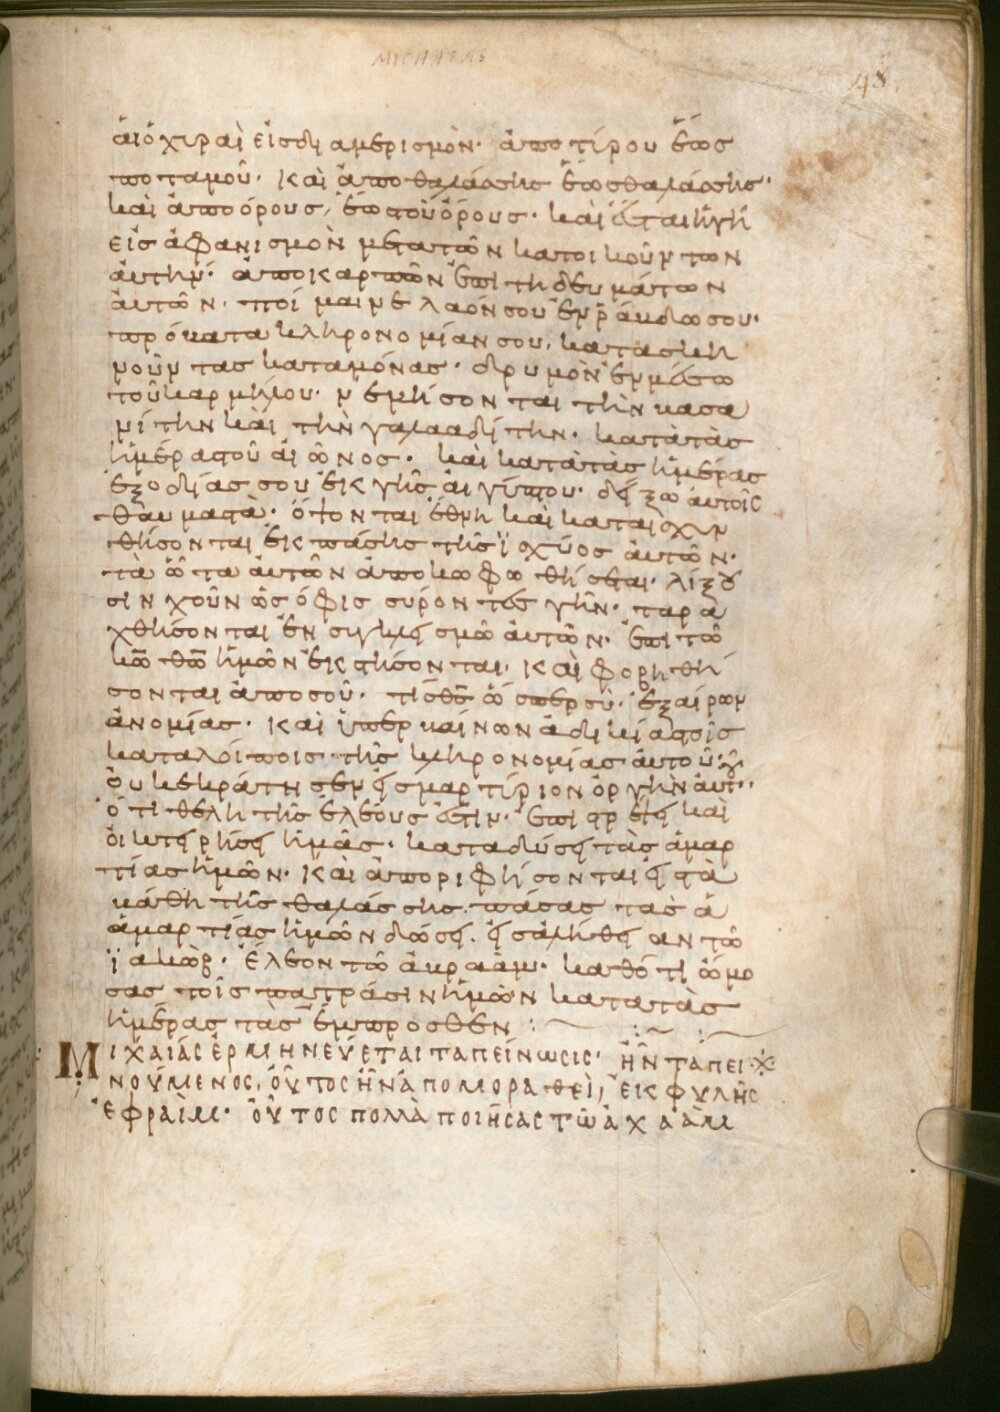 MICHAEAS
48
ἁιὀχυραὶ εἰσδιαμερισμὸν· ἀπο τύρου ἕως
ποταμοῦ· καὶ ἀπο θαλάσσης ἕως θαλάσσης·
καὶ ἀπο όρους, ἕως τοῦ όρους· καὶ ἔσται ἡ γῆ
εἰς ἀφανισμὸν μετα τῶν κατοικούντων
ἀυτην· ἀπο καρπῶν ἐπιτηδευμάτων
ἀυτῶν· ποίμαινε λαόν σου ἐν ῥάβδω σου·
πρόβατα κληρονομίαν σου, κατασκη
νοῦντας καταμόνας· δρυμὸν ἐν μέσω
τοῦ καρμήλου· νεμήσονται τὴν βασα
νίτην καὶ τὴν γαλααδίτην· κατὰ τὰς
ἡμέρας τοῦ ἀιῶνος· καὶ κατὰ τὰς ἡμέρας
ἐξοδίας σου ἐκ γῆς ἀιγύπτου· δείξω αυτοῖς
θαυμαστὰ· ὄψονται ἔθνη καὶ καταισχυν
θήσονται ἐκ πάσης τῆς ϊσχύος ἀυτῶν·
τὰ ὦτα ἀυτῶν ἀποκωφωθήσεται· λίξου
σιν χοῦν ὡς όφις σύροντες γῆν· ταρα
χθήσονται ἐν συγκλεισμῶ ἀυτῶν· ἐπι τῶ
κω θω ἡμῶν ἐκστήσονται· καὶ φοβηθή
σονται ἀπο σοῦ· τίς θς ὥσπερ σύ· ἐξαίρων
ἀνομίας· καὶ ὑπερβαίνων ἀδικίας τοῖς
καταλοίποις τῆς κληρονομίας ἀυτοῦ·
ὀυκ ἐκράτησεν εἰς μαρτύριον ὀργὴν ἀυτοῦ·
ὅτι θελητὴς ἐλέους ἐστὶν· ἐπιστρέψει καὶ
ὀικτειρήσει ἡμᾶς· καταδύσει τὰς ἁμαρ
τίας ἡμῶν· καὶ ἀποριφήσονται εἰς τὰ
βάθη τῆς θαλάσσης. πάσας τὰς ἁ
ἁμαρτίας ἡμῶν δώσει. εἰς ἀλήθειαν τῶ
ϊακώβ· ἔλεον τῶ ἀβραάμ· καθότι ὤμο
σας τοῖς πατράσιν ἡμῶν κατα τὰς
ἡμέρας τὰς ἔμπροσθεν
Μιχαίας ἑρμηνεύεται ταπείνωσις· ἢ ταπει
νούμενος, οὗτος ἦν ἀπο μοραθεὶ, ἐκ φυλῆς
ἐφραὶμ· οὗτος πολλὰ ποιήσας τῶ ἀχαὰμ